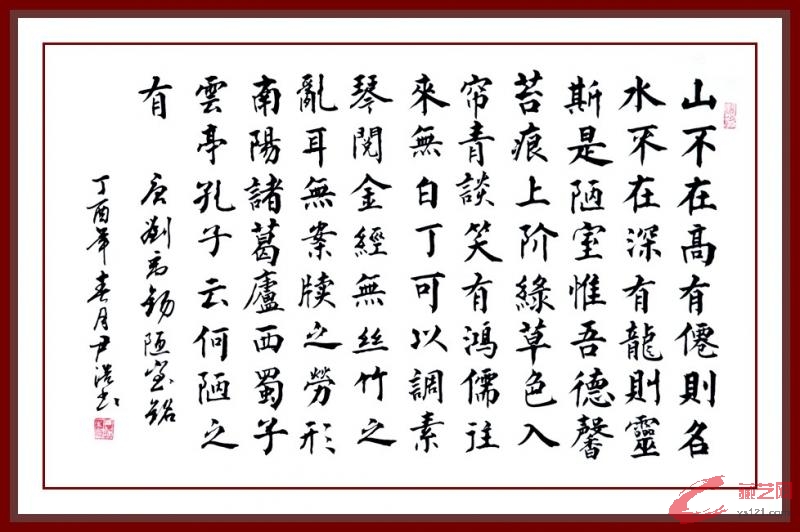 山不在高有僊則名
水不在深有龍則靈
斯是陋室惟吾德馨
苔痕上阶綠草色入
帘青談笑有鴻儒往
來無白丁可以調素
琴閱金經無丝竹之
亂耳無案牍之勞形
南陽諸葛廬西蜀子
雲亭孔子云何陋之
有 唐劉禹錫陋室銘
丁酉年春月尹浩书
藏艺网